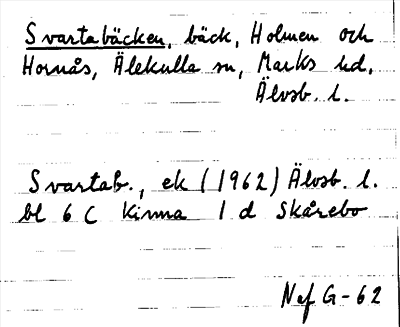 Svartabäcken, bäck, Holmen och
Hornås, Älekulla sn, Marks hd,
Älvsb. l.
Svartab., ek (1962) Älvsb. l.
bl 6 C Kinna 1 d Skårebo
Naf G-62